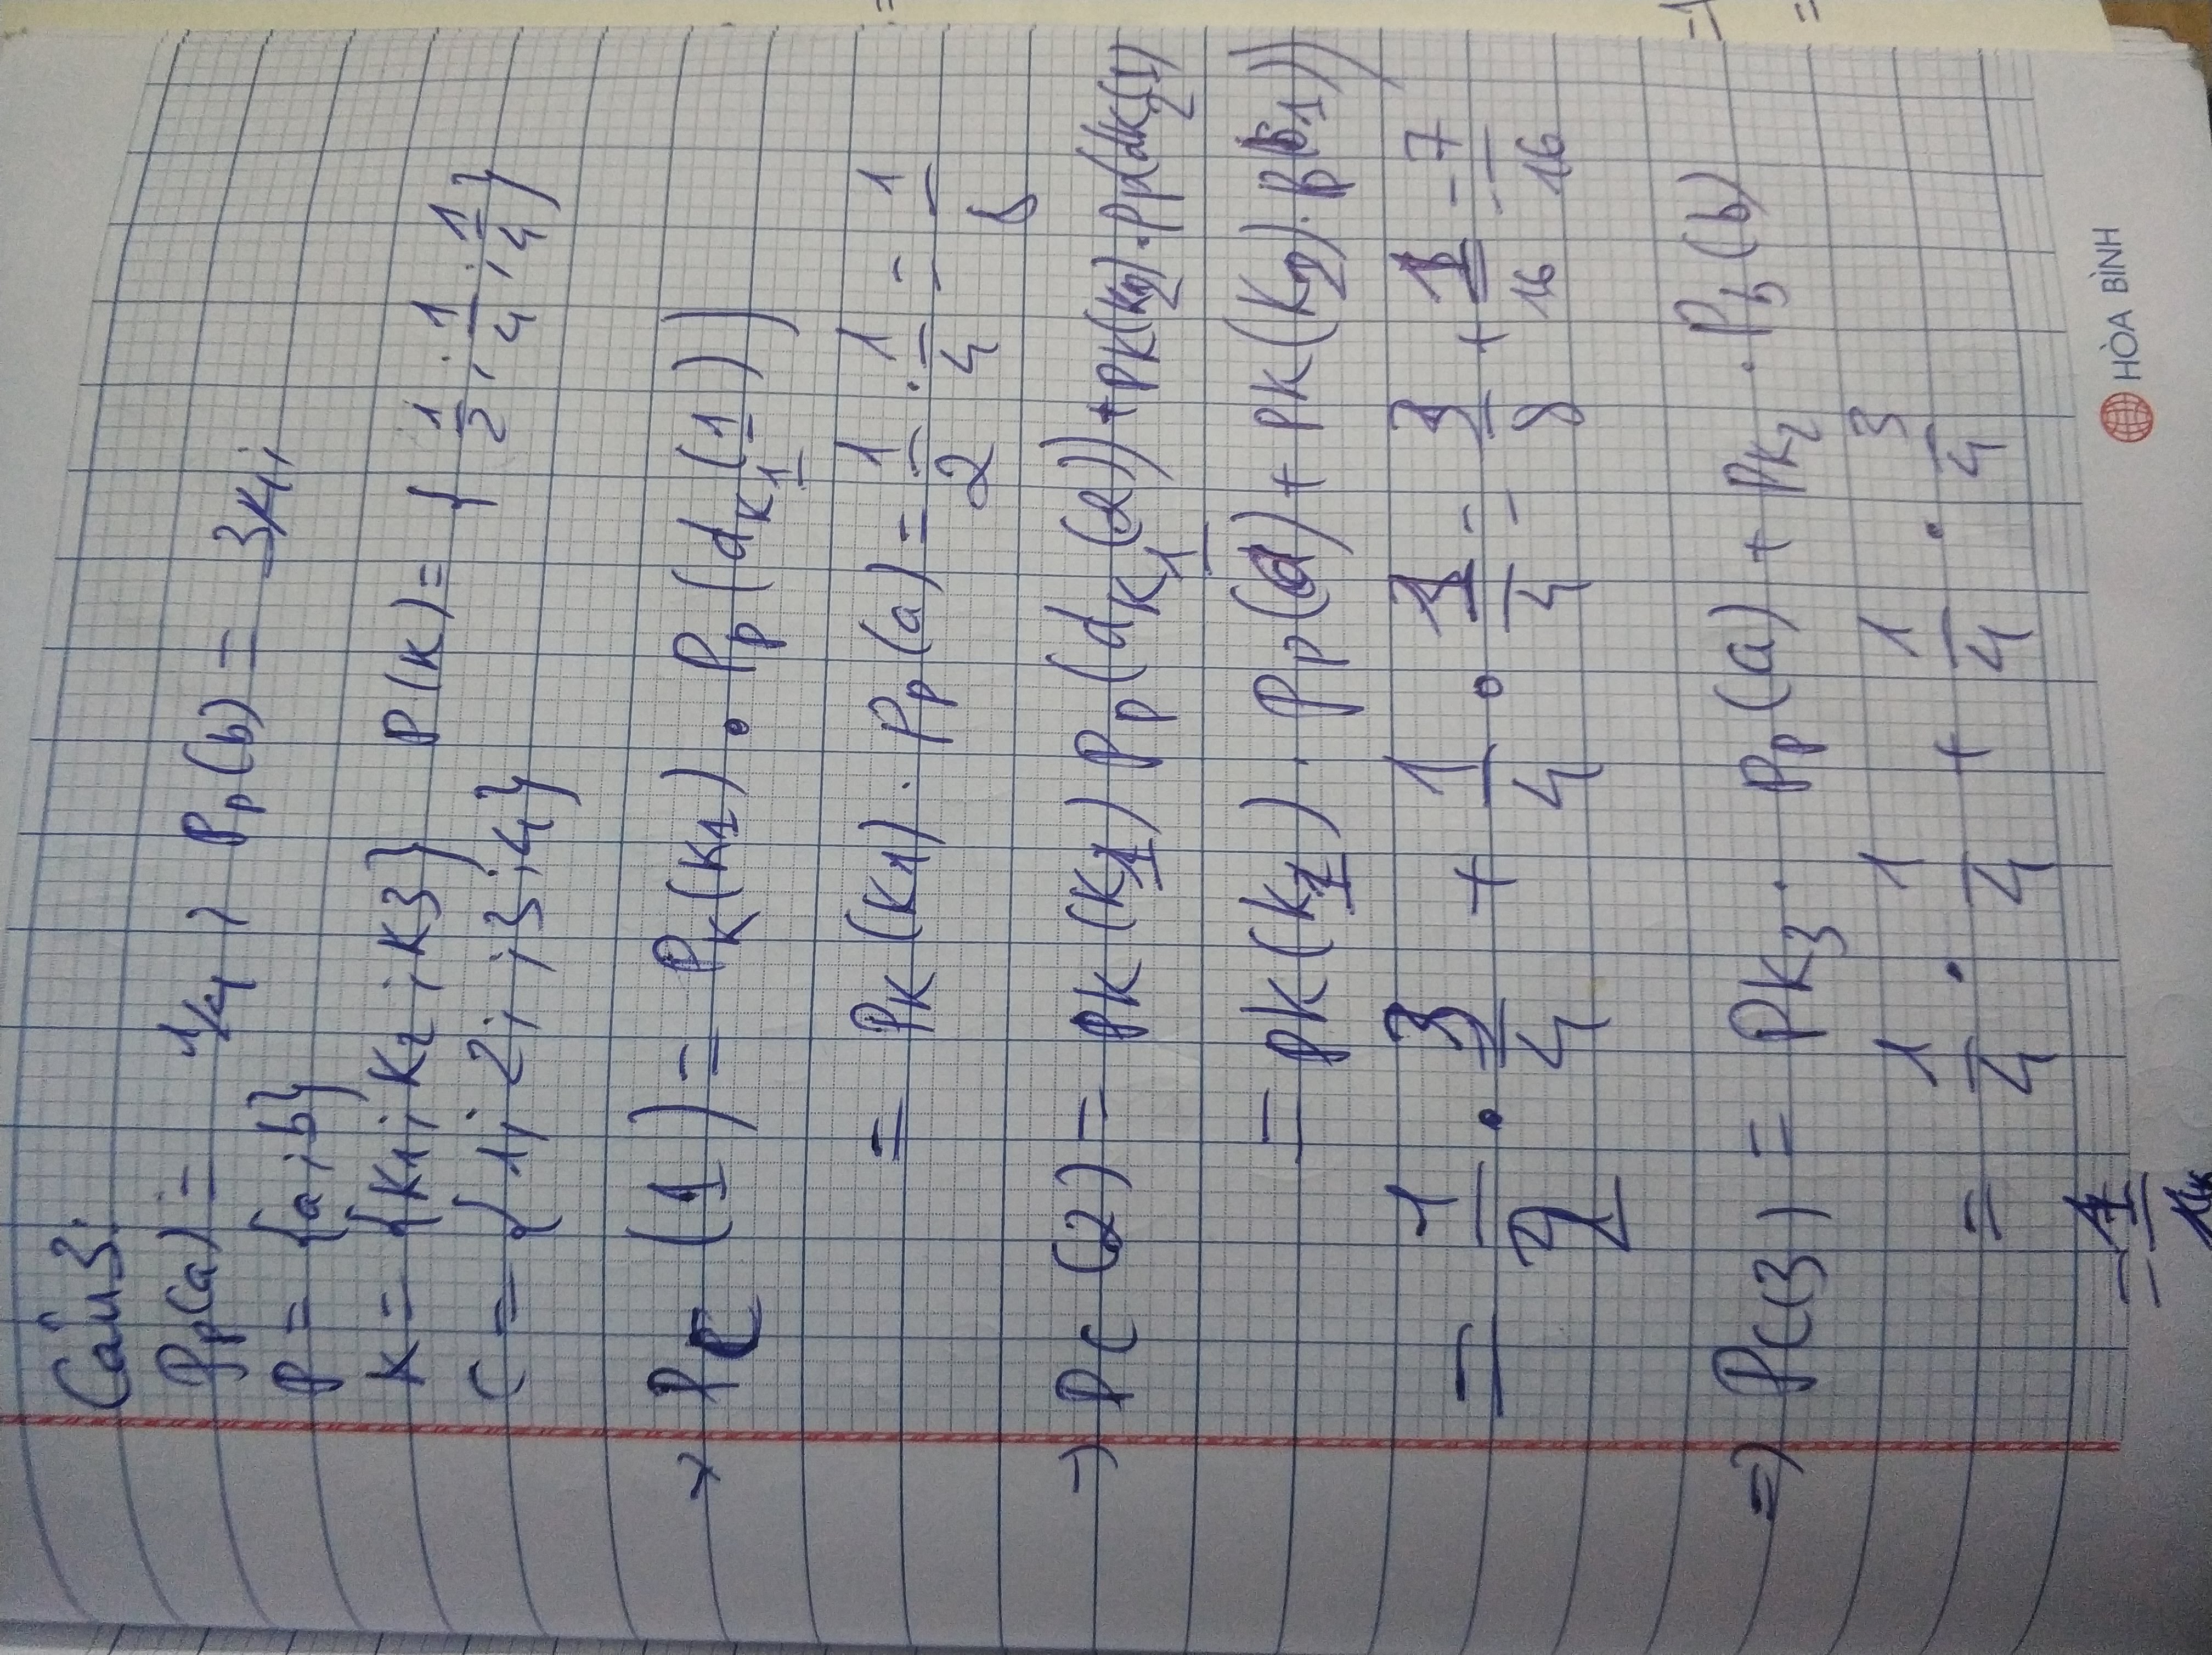 Câu 3:
Pp(a) = 1/4 ; Pp(b) = 3/4;
P = {a ; b}
K = {K1 ; K2 ; K3} P(K) = { 1/2 ; 1/4 ; 1/4 }
C = { 1; 2; ; 3 ; 4}
→ PC (1) = PK(K1) . Pp(dK1(1))
= PK(K1) . Pp(a) = 1/2 . 1/4 = 1/8
→ PC (2) = PK(K1) Pp(dK1(2)) + PK(K2) . Pp(dK2(1)
= PK(K1) . Pp( ) + PK(K2) .
= 1/2 . 3/4 + 1/4 . 1/4 = 3/8 + 1/16 = 7/16
=> PC(3) = PK3 . Pp(a) + PK2 . (b)
= 1/4 . 1/4 + 1/4 . 3/4
=
HÒA BÌNH